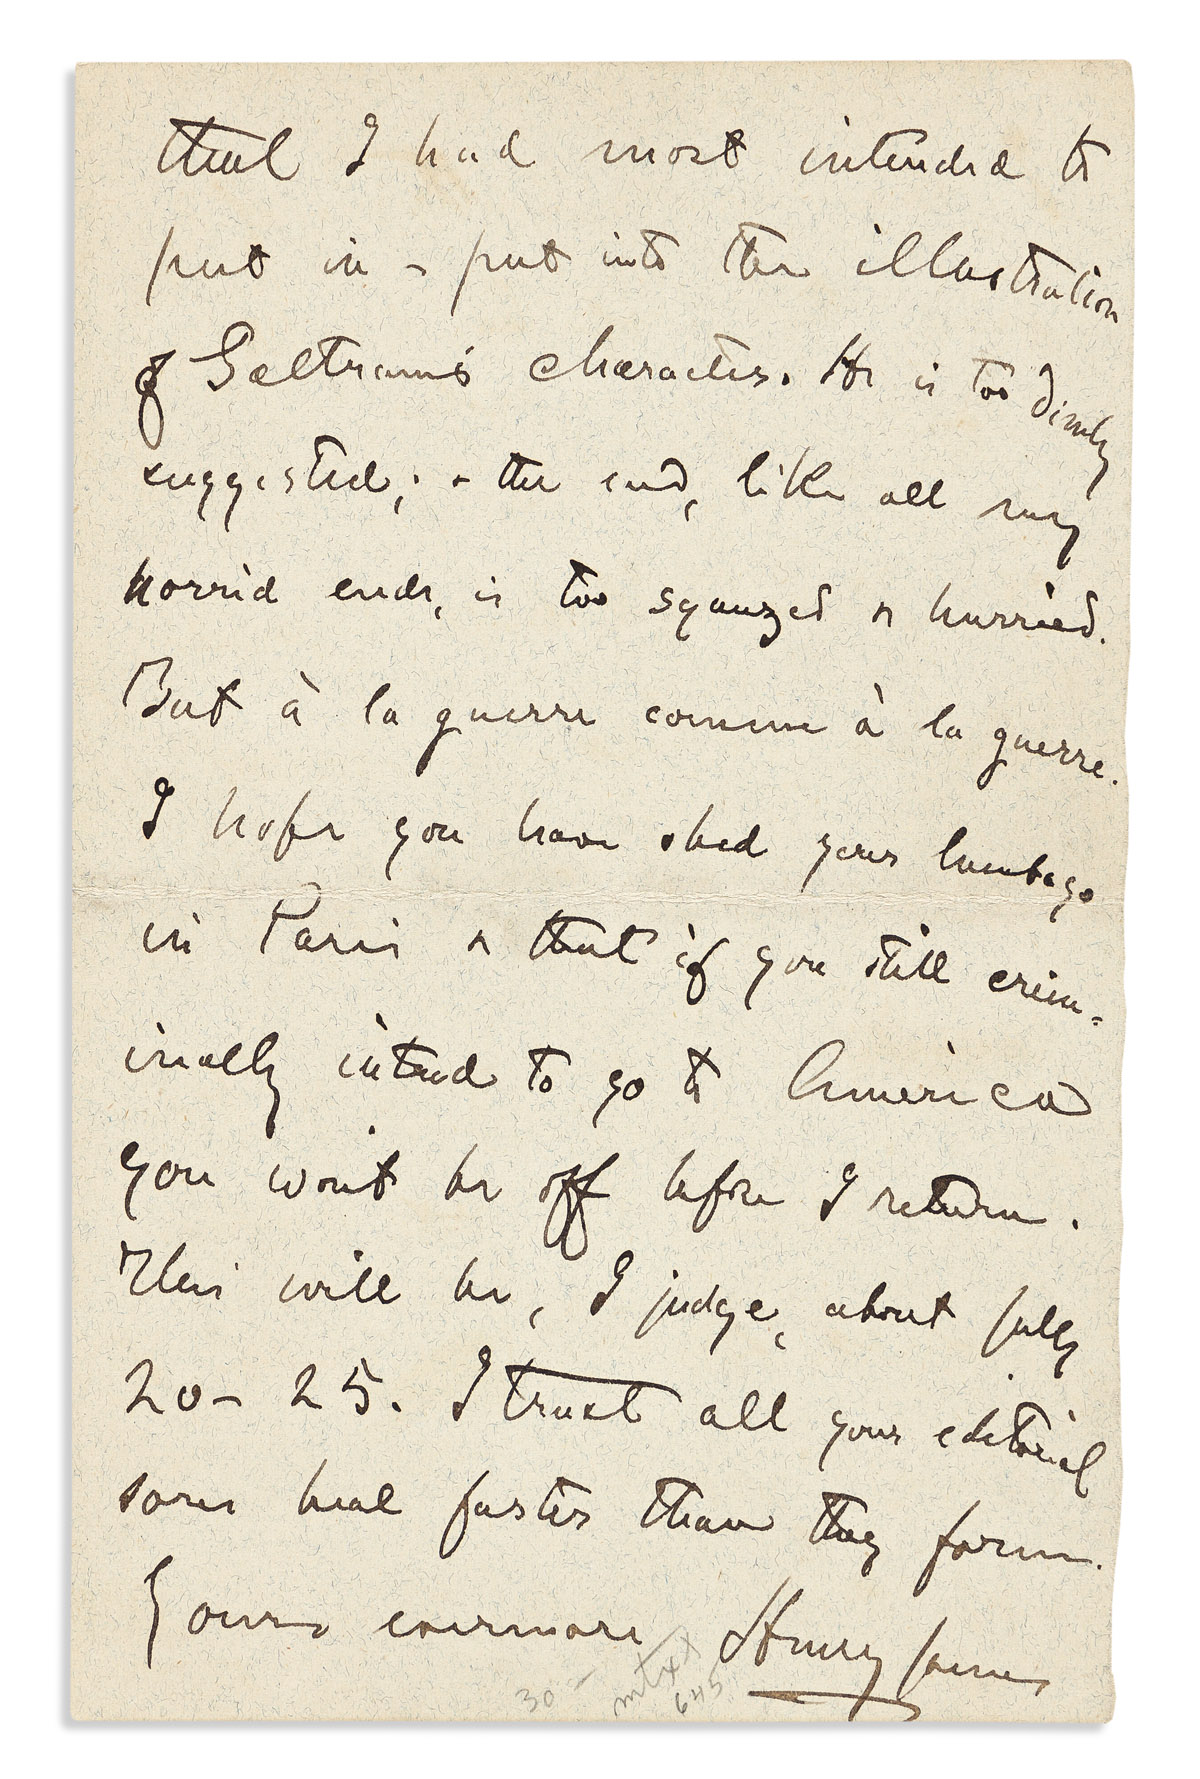 that I had most intended to
put in - put into the illustration
of Beltram's character. He is too dimly
suggested; & the end, like all my
horrid ends, is too squeezed & hurried.
But à la guerre comme à la guerre.
I hope you have shed your lumbago
in Paris & that if you still crim=
inally intend to go to America
you won't be off before I return.
This will be, I judge, about July
20 - 25. I trust all your editorial
sores heal faster than they form.
Yours evermore Henry James
30 -
645